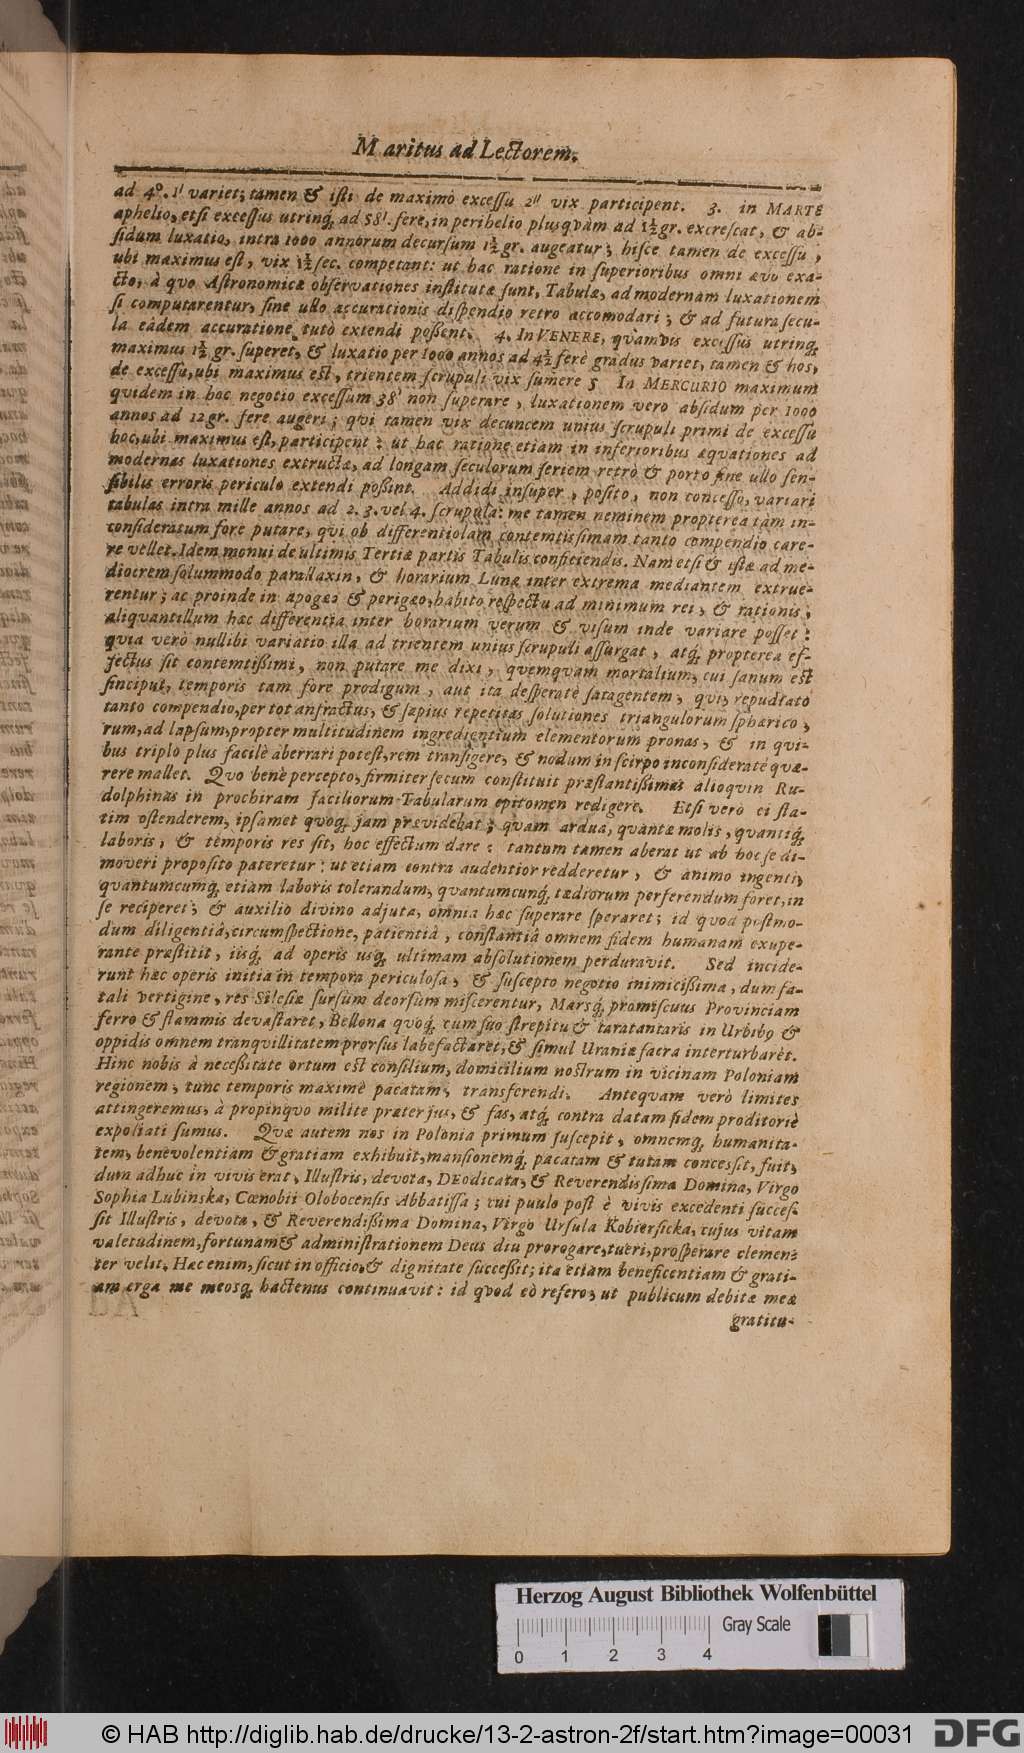 Maritus ad Lectorem.
ad 4°. 1' variet; tamen & iſti de maximò exceſſu 2'' vix participent. 3. in MARTE
aphelio, etſi exceſſus utrinq; ad 58'. fere, in perihelio pluſquàm ad 1½ gr. excreſcat, & ab-
ſidum luxatio, intra 1000 annorum decurſum 1½ gr. augeatur; hiſce tamen de exceſſu,
ubi maximus eſt, vix 1½ ſec. competant: ut hac ratione in ſuperioribus omni ævo exa-
cto, à quo Aſtronomicæ obſervationes inſtitutæ ſunt, Tabulæ, ad modernam luxationem
ſi computarentur, ſine ullo accurationis diſpendio retro accomodari; & ad futura ſecu-
la eâdem accuratione tutò extendi poßent. 4. In VENERE, quamvis exceſſus utrinq;
maximus 1½ gr. ſuperet, & luxatio per 1000 annos ad 4½ ferè gradus variet, tamen & hos,
de exceſſu, ubi maximus eſt, trientem ſcrupuli vix ſumere 5 In MERCURIO maximum
quidem in hoc negotio exceſſum 38' non ſuperare, luxationem vero abſidum per 1000
annos ad 12 gr. fere augeri; qui tamen vix decuncem unius ſcrupuli primi de exceſſu
hoc, ubi maximus eſt, participent: ut hac ratione etiam in inferioribus æquationes ad
modernas luxationes extructæ, ad longam ſeculorum ſeriem retrò & porro ſine ullo ſen-
ſibilis erroris periculo extendi poßint. Addidi inſuper, poſito, non conceſſo, variari
tabulas intra mille annos ad 2. 3. vel 4. ſcrupula: me tamen neminem propterea tàm in-
conſideratum fore putare, qui ob differentiolam contemtißimam tanto compendio care-
re vellet. Idem monui de ultimis Tertiæ partis Tabulis conficiendis. Nam etſi & iſtæ ad me-
diocrem ſolummodo parallaxin, & horarium Lunæ inter extrema mediantem extrue-
rentur; ac proinde in apogæo & perigæo, habito reſpectu ad minimum rei, & rationis,
aliquantillum hæc differentia inter horarium verum & viſum inde variare poſſet:
quia verò nullibi variatio illa ad trientem unius ſcrupuli aſſurgat, atq; propterea ef-
fectus ſit contemtißimi, non putare me dixi, quemquam mortalium, cui ſanum eſt
ſinciput, temporis tam fore prodigum, aut ita deſperatè ſatagentem, qui, repudiato
tanto compendio, per tot anfractus, & ſæpius repetitas ſolutiones triangulorum ſphærico,
rum, ad lapſum, propter multitudinem ingredientium elementorum pronas, & in qui-
bus triplo plus facilè aberrari poteſt, rem tranſigere, & nodum in ſcirpo inconſideratè quæ-
rere mallet. Quo benè percepto, firmiter ſecum conſtituit præſtantißimas alioquin Ru-
dolphinas in prochiram faciliorum Tabularum epitomen redigere. Etſi verò ei ſta-
tim oſtenderem, ipſamet quoq; jam prævidebat; quam ardua, quantæ molis, quantiq;
laboris, & temporis res ſit, hoc effectum dare: tantum tamen aberat ut ab hoc ſe di-
moveri propoſito pateretur: ut etiam contra audentior redderetur, & animo ingenti,
quantumcumq; etiam laboris tolerandum, quantumcunq; tædiorum perferendum foret, in
ſe reciperet; & auxilio divino adjuta, omnia hæc ſuperare ſperaret; id quod poſtmo-
dum diligentiâ, circumſpectione, patientiâ, conſtantiâ omnem fidem humanam exupe-
rante præſtitit, iisq; ad operis usq; ultimam abſolutionem perduravit. Sed incide-
runt hæc operis initia in tempora periculoſa, & ſuſcepto negotio inimicißima, dum fa-
tali vertigine, res Sileſiæ ſurſùm deorſùm miſcerentur, Marsq; promiſcuus Provinciam
ferro & flammis devaſtaret, Bellona quoq; cum ſuo ſtrepitu & taratantaris in Urbibꝰ &
oppidis omnem tranquillitatem prorſus labefactaret, & ſimul Uraniæ ſacra interturbarèt.
Hinc nobis à neceßitate ortum eſt conſilium, domicilium noſtrum in vicinam Poloniam
regionem, tunc temporis maximè pacatam, transferendi. Antequam verò limites
attingeremus, à propinquo milite præter jus, & fas, atq; contra datam fidem proditoriè
expoliati ſumus. Quæ autem nos in Polonia primum ſuſcepit, omnemq; humanita-
tem, benevolentiam & gratiam exhibuit, manſionemq; pacatam & tutam conceſſit, fuit,
dum adhuc in vivis erat, Illuſtris, devota, DEodicata, & Reverendiſſima Domina, Virgo
Sophia Lubinska, Cœnobii Olobocenſis Abbatiſſa; cui paulo poſt è vivis excedenti ſucceſ-
ſit Illuſtris, devota, & Reverendißima Domina, Virgo Urſula Kobierſicka, cujus vitam
valetudinem, fortunam & adminiſtrationem Deus diu prorogare, tueri, proſperare clemen-
ter velit. Hæc enim, ſicut in officio, & dignitate ſucceßit; ita etiam beneficentiam & grati-
am erga me meosq; hactenus continuavit: id quod eò refero, ut publicum debitæ meæ
gratitu-
Herzog August Bibliothek Wolfenbüttel
Gray Scale
0 1 2 3 4
© HAB http://diglib.hab.de/drucke/13-2-astron-2f/start.htm?image=00031
DFG